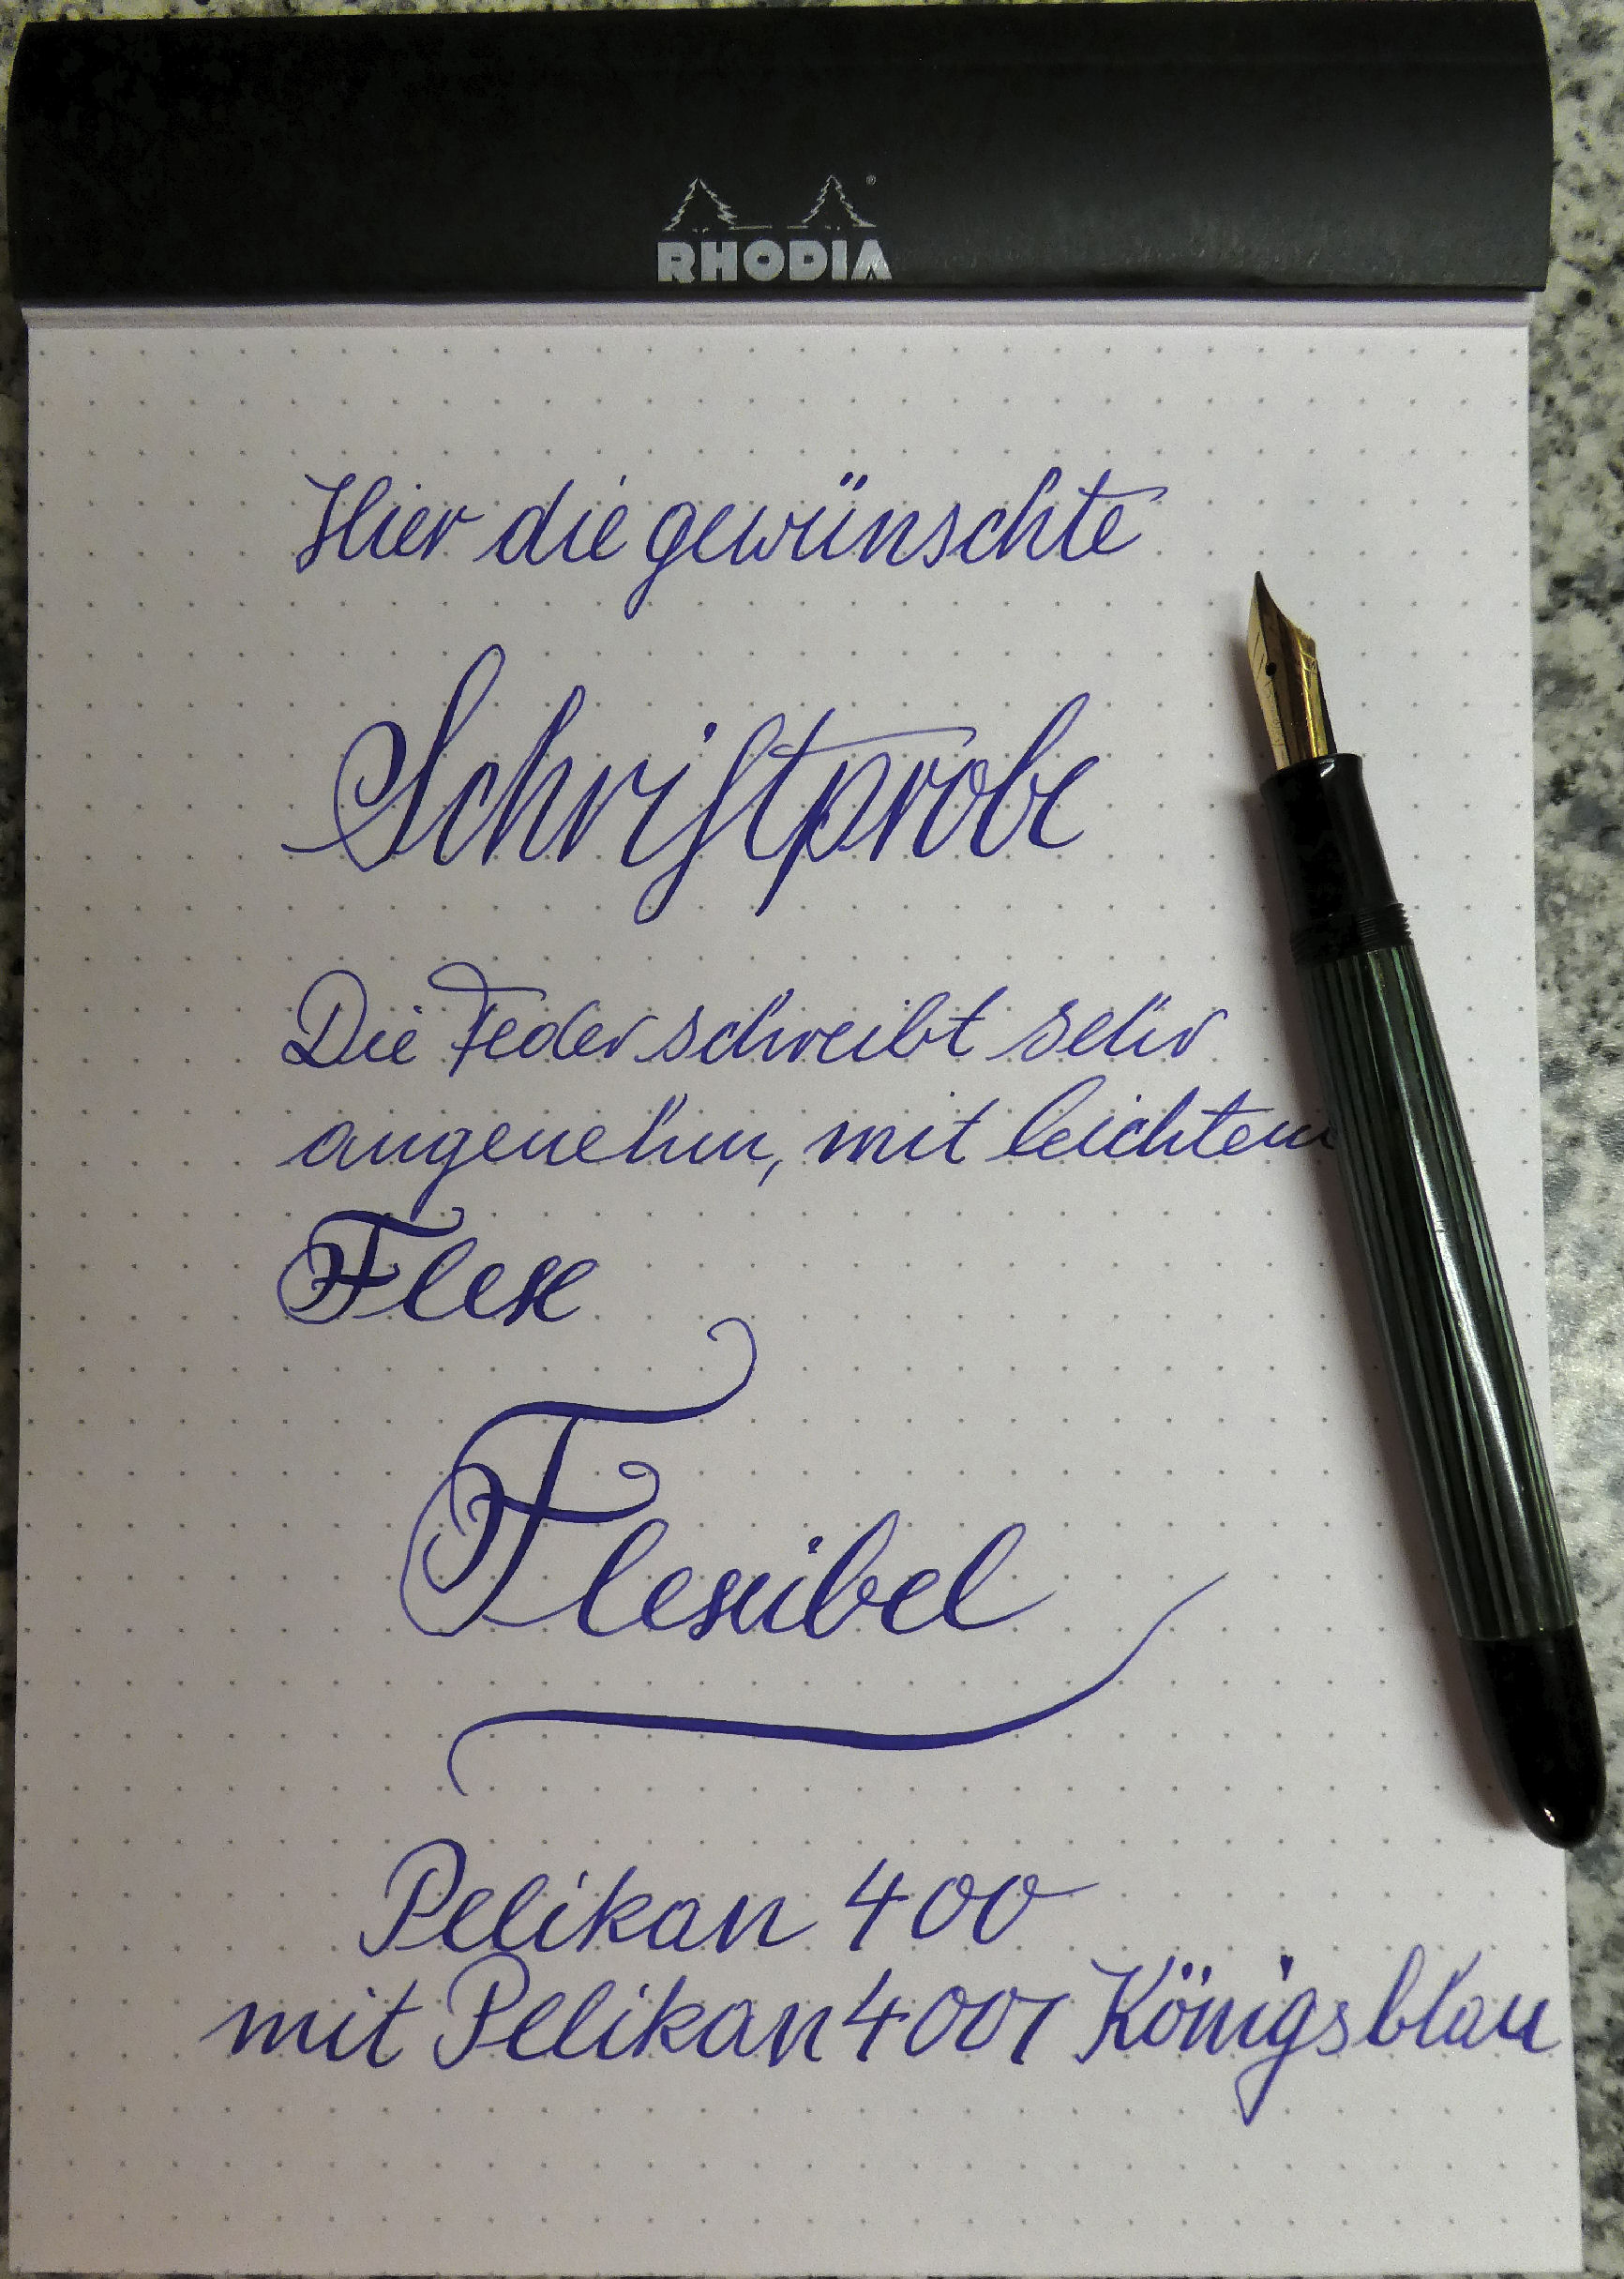 RHODIA
Hier die gewünschte
Schriftprobe
Die Feder schreibt sehr
angenehm, mit leichtem
Flex
Flexibel
Pelikan 400
mit Pelikan 4001 Königsblau